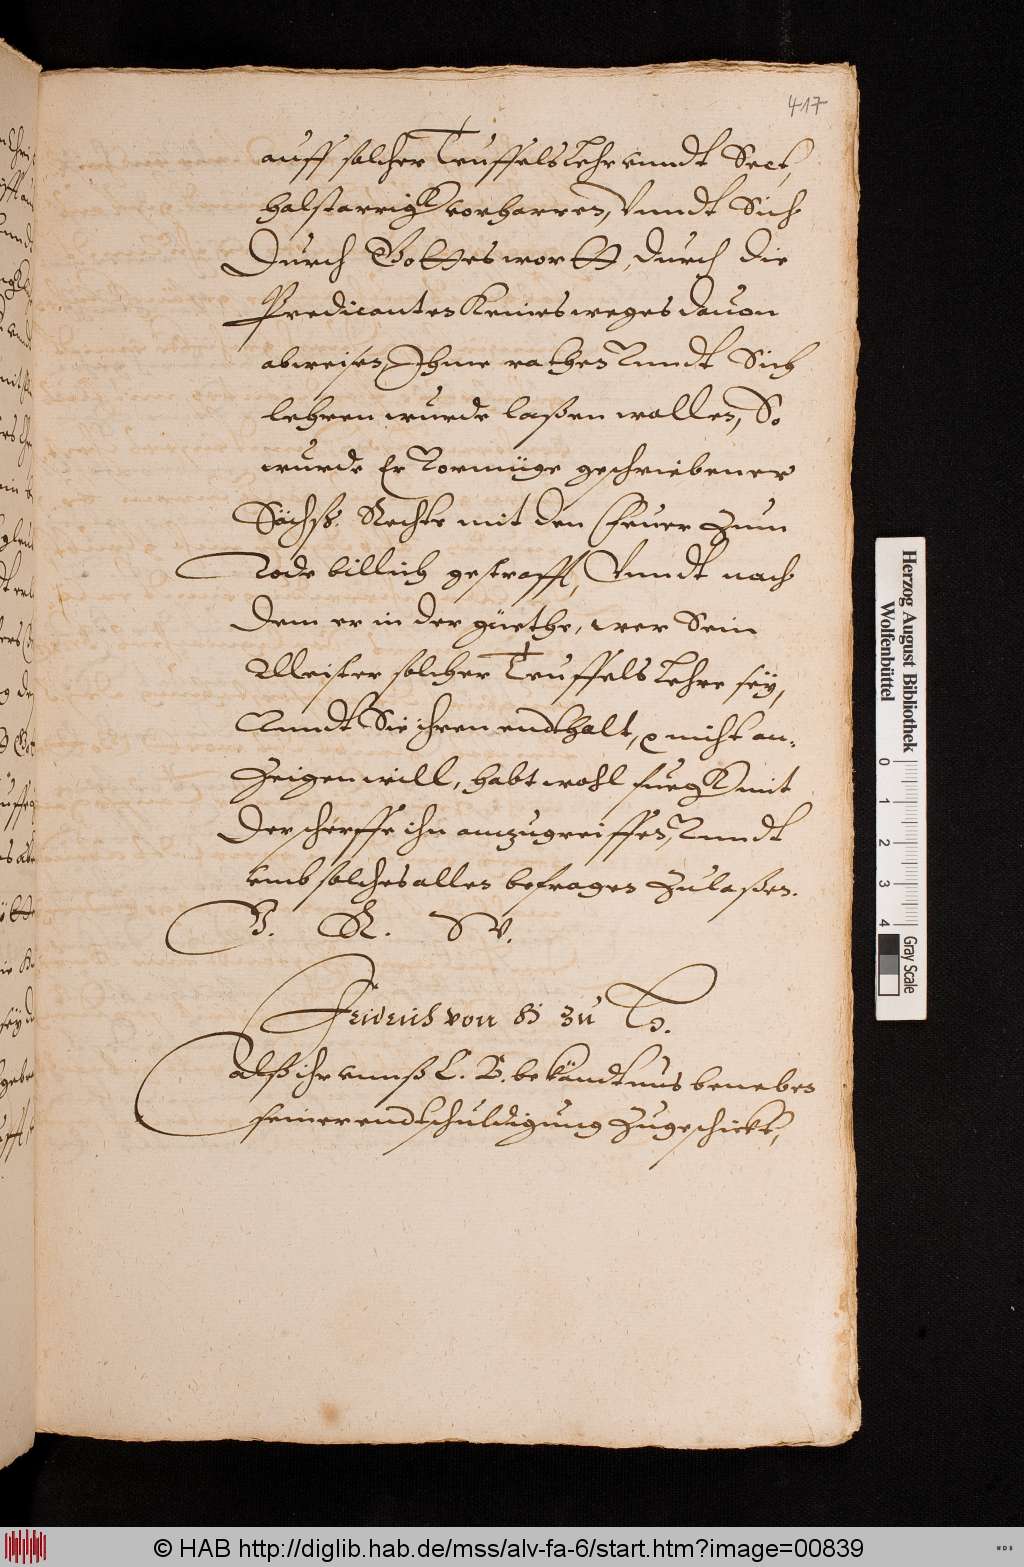 417
auff solcher Teuffels Lehr vnndt Sect,
halstarrigk vorharren, Vnndt Sich
Durch Gottes wortt, durch die
Predicanten keines weges dauon
abweisen, Ihme rathen Vnndt Sich
lehren wurde laßen wollen, So
wurde Er Vormüge geschriebener
Sächß. Rechte mit den Feuer Zum
Tode billich gestrafft, Vnndt nach
Dem er in der güethe, wer Sein
Meister solcher Teuffels Lehre seÿ,
Vnndt Sie ihren endthalt, nicht an-
Zeigen will, habt wohl fuegk mit
Der scherffe ihn anzugreiffen, Vnndt
vmb solches alles befragen Zulaßen.
V. R. W.
Friderich von B Zu T.
Alß ihr vnnß L. B. bekändtnus beneben
seiner endtschuldigung Zugeschickt,
Herzog August Bibliothek
Wolfenbüttel
0 1 2 3 4
Gray Scale
© HAB http://diglib.hab.de/mss/alv-fa-6/start.htm?image=00839